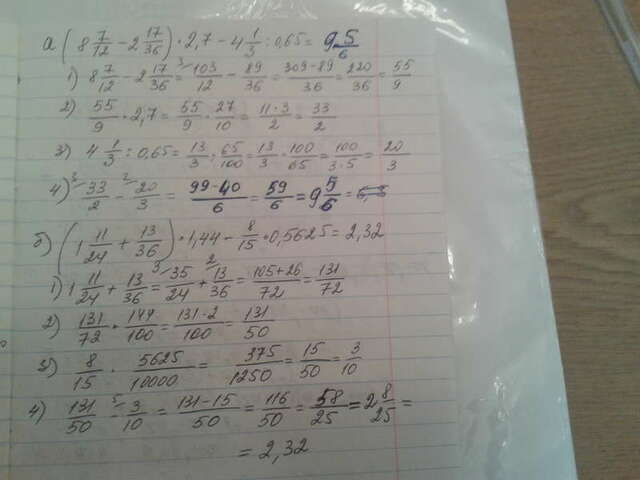 а (8 7/12 - 2 17/36) · 2,7 - 4 1/3 : 0,65 = 9 5/6
1) 8 7/12 - 2 17/36 = 103/12 - 89/36 = 309-89/36 = 220/36 = 55/9
2) 55/9 · 2,7 = 55/9 · 27/10 = 11·3/2 = 33/2
3) 4 1/3 : 0,65 = 13/3 : 65/100 = 13/3 · 100/65 = 100/3·5 = 20/3
4) 33/2 - 20/3 = 99-40/6 = 59/6 = 9 5/6 =
б) (1 11/24 + 13/36) · 1,44 - 8/15 · 0,5625 = 2,32
1) 1 11/24 + 13/36 = 35/24 + 13/36 = 105+26/72 = 131/72
2) 131/72 · 144/100 = 131·2/100 = 131/50
3) 8/15 · 5625/10000 = 375/1250 = 15/50 = 3/10
4) 131/50 - 3/10 = 131-15/50 = 116/50 = 58/25 = 2 8/25 =
= 2,32